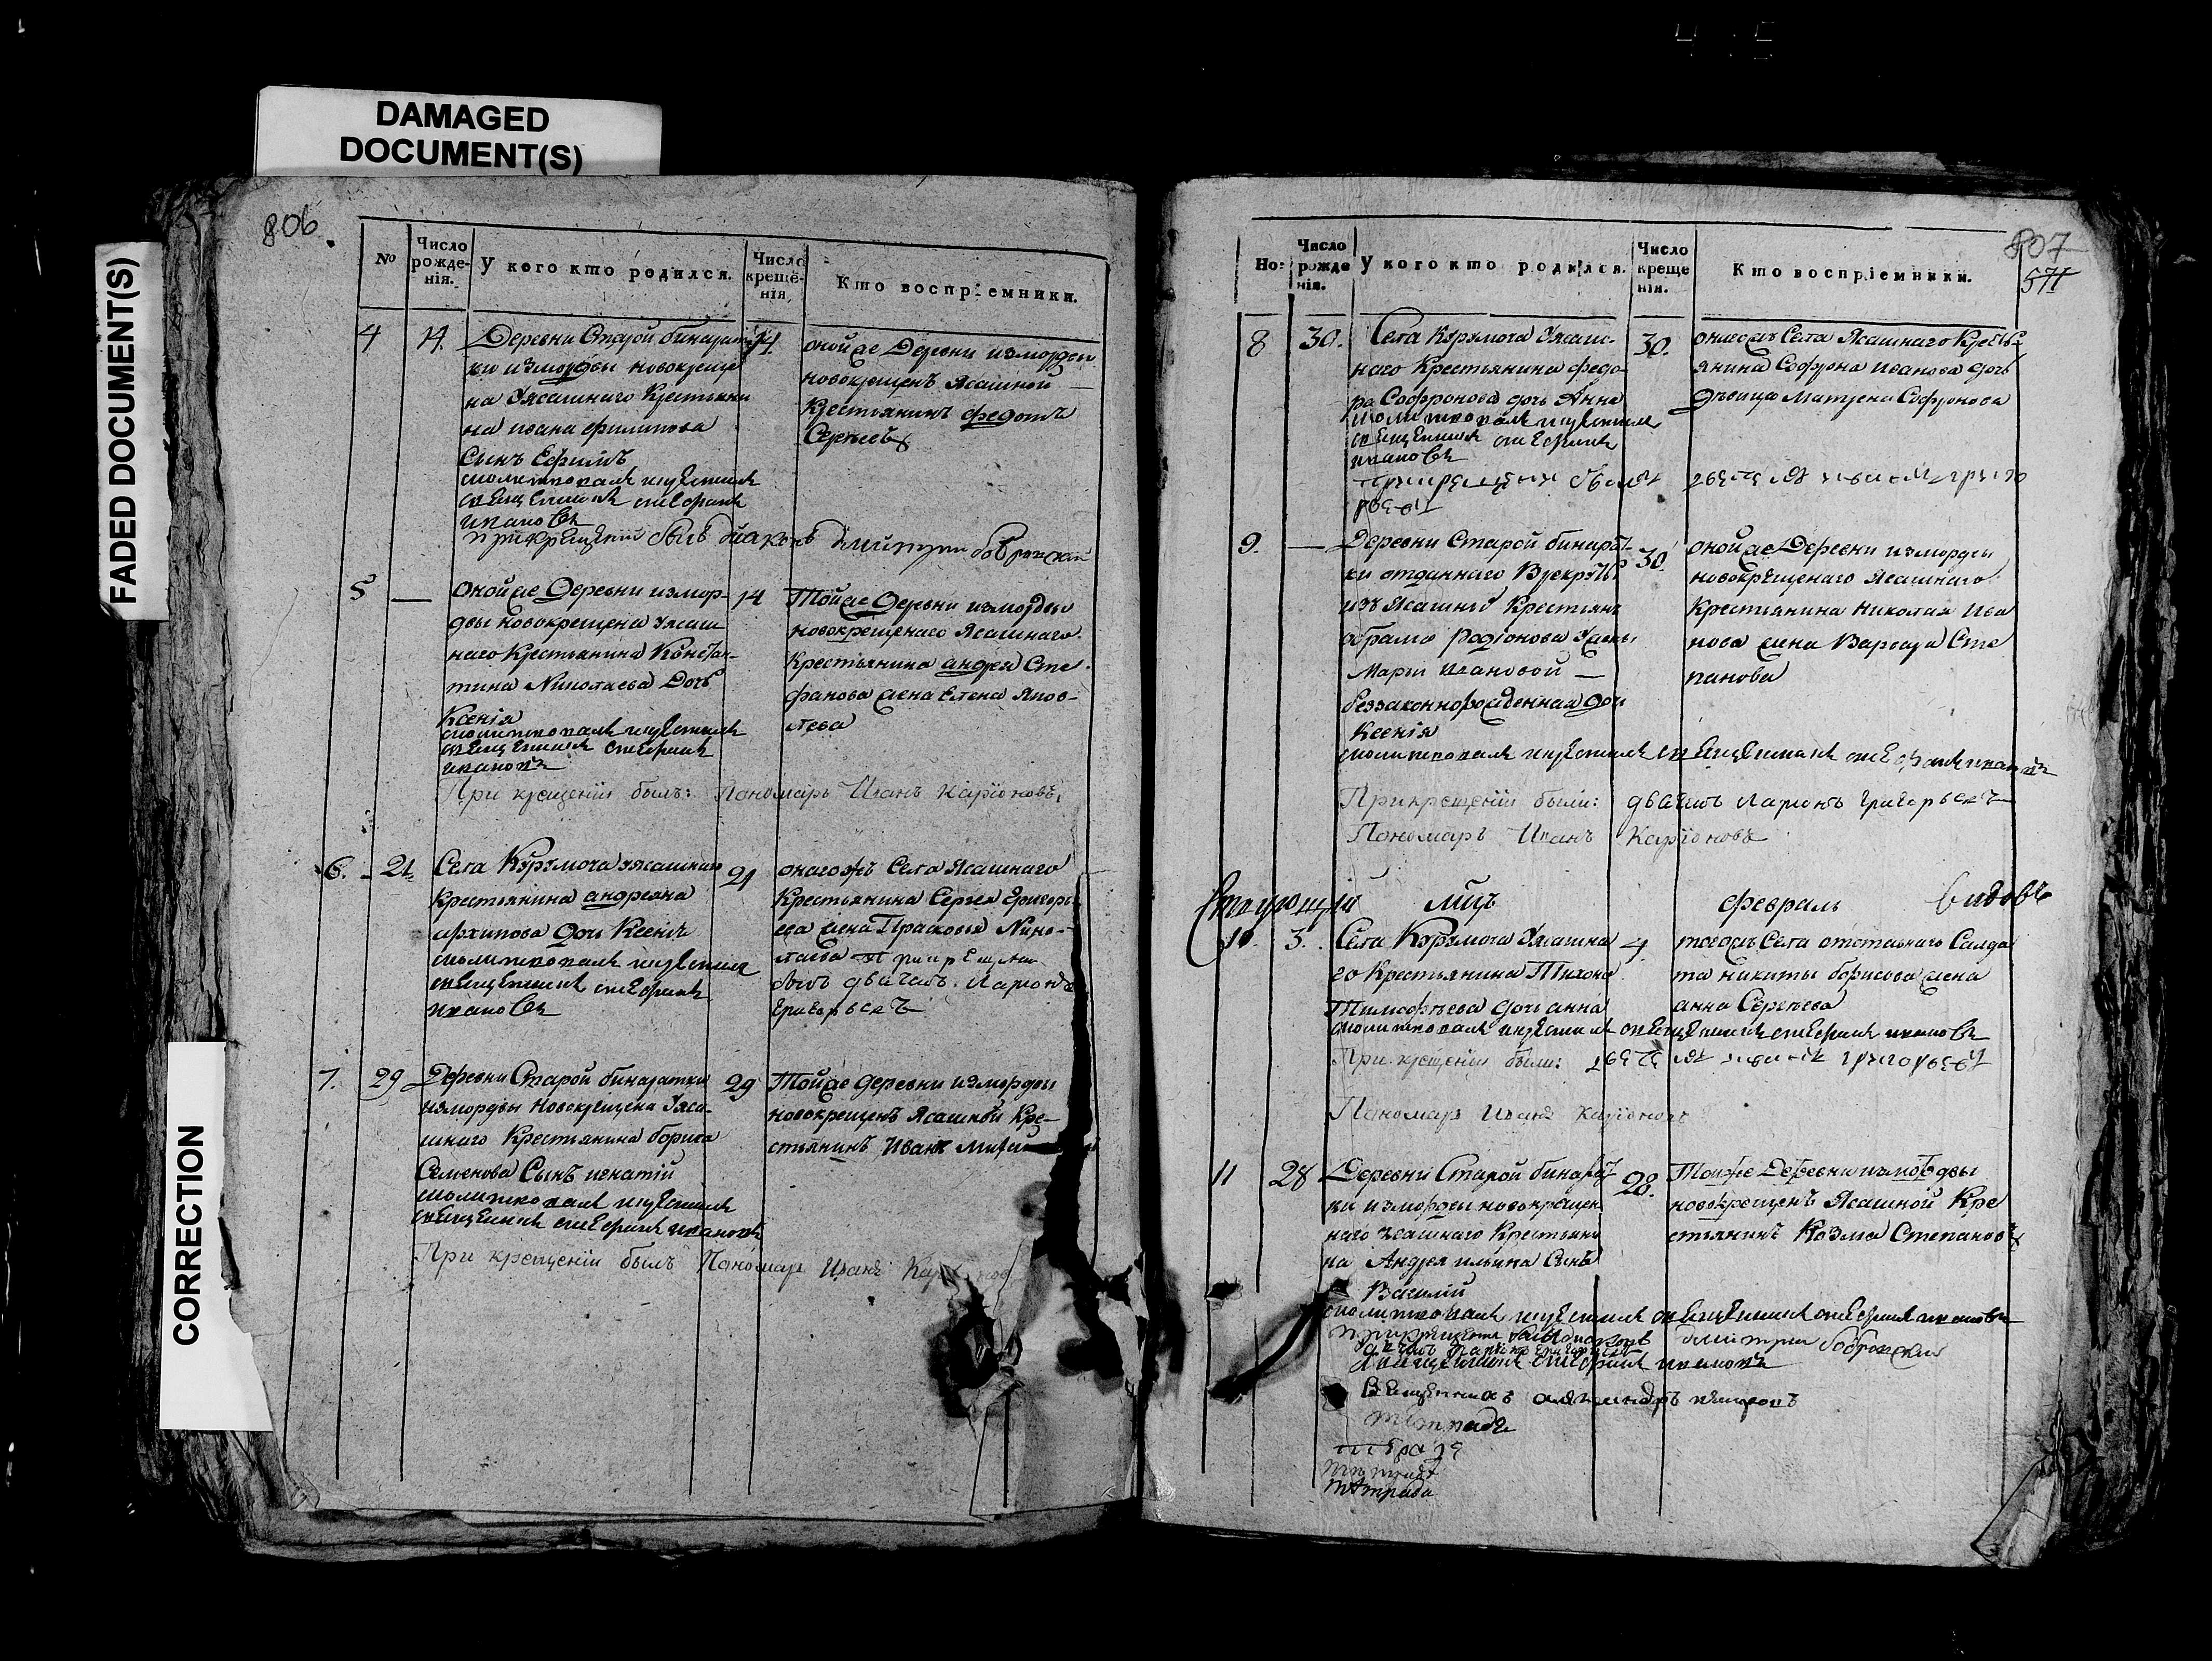 DAMAGED
DOCUMENT(S)
FADED DOCUMENT(S)
CORRECTION
806
№
Число рожде-нія.
У кого кто родился.
Число креще-нія.
Кто воспріемники.
4
14.
Деревни Старой бинарат
ки измордвы новокреще
на Уясашнаго Крестьяни
на ивана филипова
Сынъ Ефимъ
молитвовалъ икрестилъ
священникъ стефанъ
ивановъ
При крещеніи былъ диаконъ димитрии бобровский
14.
оной же Деревни измордвы
новокрещенъ Ясашной
крестьянинъ федотъ
Сергеевъ
5
—
оной же Деревни измор-
двы новокрещена Уясаш
наго Крестьянина Констан-
тина Николаева Дочь
Ксенія
молитвовалъ икрестилъ
священникъ стефанъ
ивановъ
При крещеніи былъ: Пономарь Иванъ Каріоновъ,
14
Той же Деревни измордвы
новокрещенаго Ясашнаго
Крестьянина андрея Сте
фанова жена Елена Яков-
лева
6.
21
Села Курумоча уясашнаго
Крестьянина андреяна
архипова Дочь Ксенія
молитвовалъ икрестилъ
священникъ стефанъ
ивановъ
21
онагожъ Села Ясашнаго
Крестьянина Сергея Григорь
ева жена Прасковья Нико-
лаева При крещении
былъ дьячекъ Ларионъ
Григорьевъ
7.
29
Деревни Старой бинаратки
измордвы Новокрещена Уяса-
шнаго Крестьянина бориса
Семенова Сынъ игнатій
молитвовалъ икрестилъ
священникъ стефанъ ивановъ
При крещеніи былъ Пономарь Иванъ
29
Той же деревни измордвы
новокрещенъ Ясашной Кре-
стьянинъ Иванъ
807
571
Но:
Число рожде нія.
У кого кто родился.
Число креще нія.
Кто воспріемники.
8
30.
Села Курумоча Уясаш-
наго Крестьянина федо-
ра Софронова дочь Анна
молитвовалъ икрестилъ
священникъ стефанъ
ивановъ
30.
оногожъ Села Ясашнаго Кресть
янина Софрона иванова дочь
Девица Матрена Софронова
9.
—
Деревни Старой бинарат-
ки отданнаго Врекруты
изъ Ясашныхъ Крестьянъ
абрама родіонова Ужены
Марьи ивановой —
беззаконнорожденная дочь
Ксенія
молитвовалъ икрестилъ священникъ стефанъ ивановъ
При крещеніи были: дьячекъ Ларионъ Григорьевъ
Пономарь Иванъ Каріоновъ
30.
оной же Деревни измордвы
новокрещенаго Ясашнаго
Крестьянина Николая Ива
нова жена Варвара Сте
панова
мцъ февраль
10.
3.
Села Курумоча Уясашна
го Крестьянина Тихона
Тимофеева дочь анна
молитвовалъ икрестилъ священникъ стефанъ ивановъ
При крещеніи были:
Пономарь Иванъ Каріоновъ
4.
тогожъ Села отставнаго Салда
та никиты борисова жена
анна Сергеева
11
28
Деревни Старой бинарат-
ки измордвы новокрещен
наго Уясашнаго Крестьяни
на Андрея ильина Сынъ
Василій
молитвовалъ икрестилъ священникъ стефанъ ивановъ
При крещении диаконъ димитрии бобровский
дьячекъ Ларионъ Григорьевъ
священникъ стефанъ ивановъ
28.
Тойже Деревни измордвы
новокрещенъ Ясашной Кре
стьянинъ Козма Степановъ